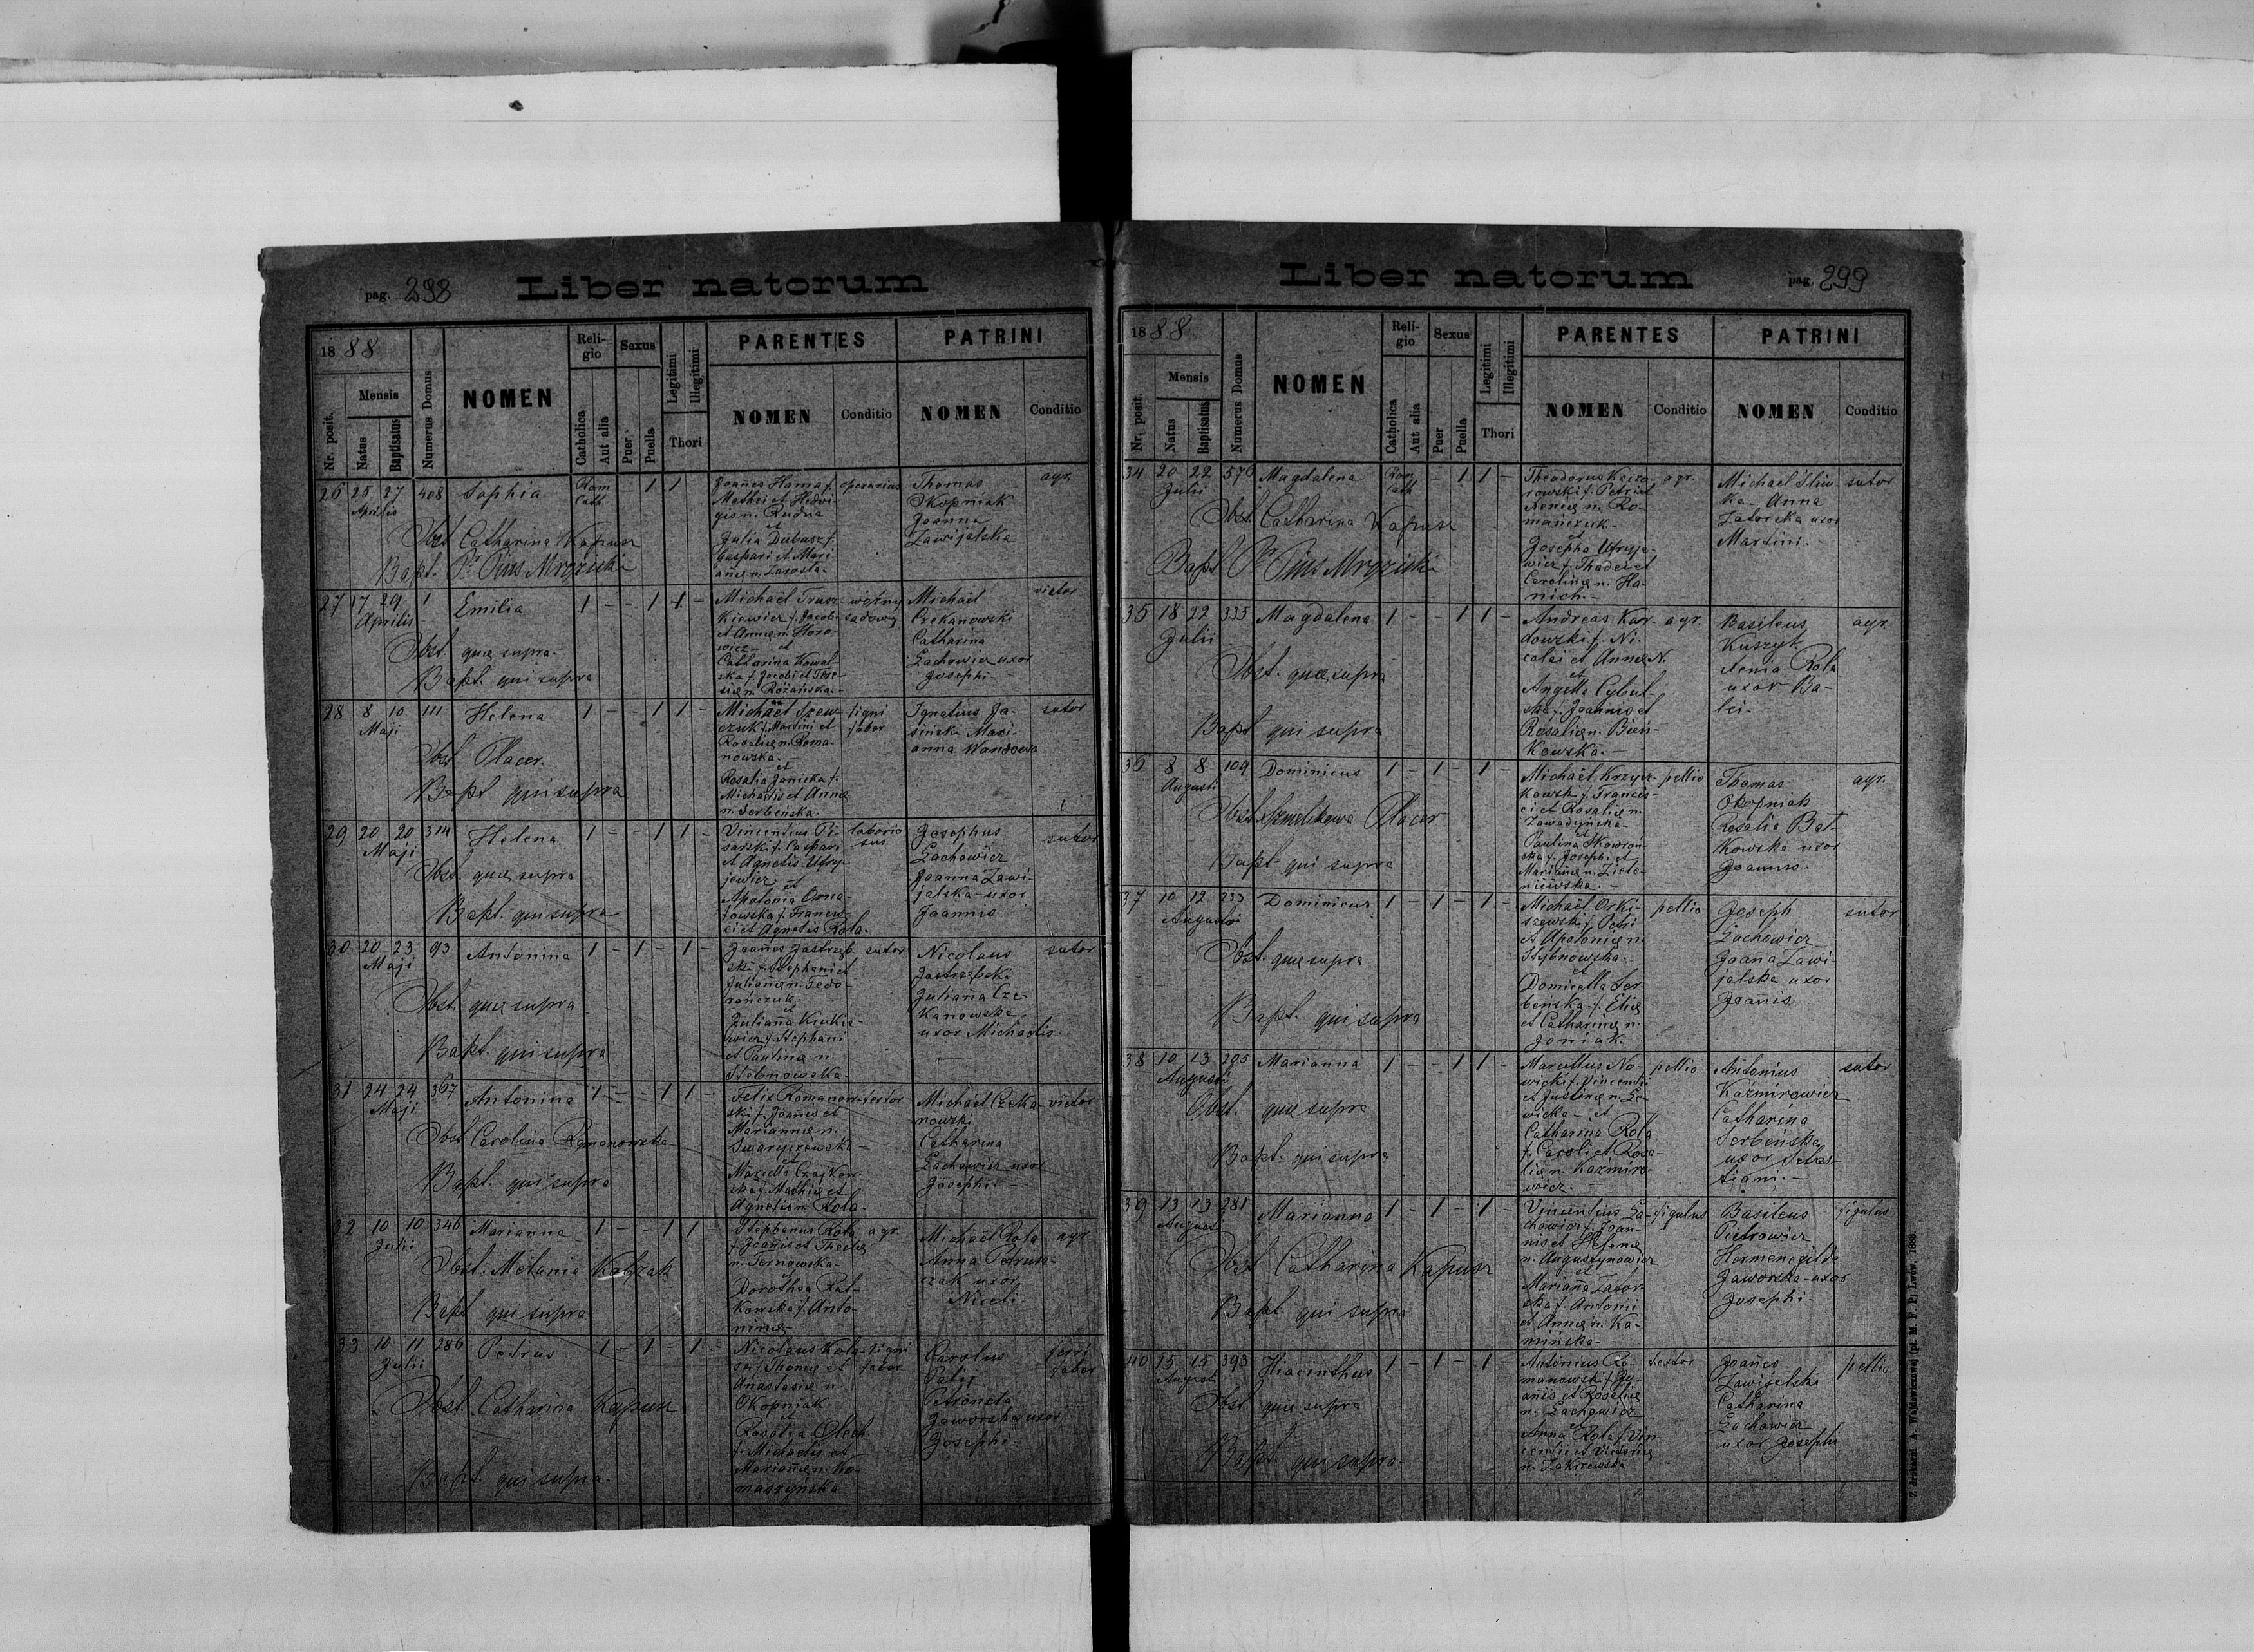 pag. 298
Liber natorum
1888
Nr. posit.
Mensis
Natus
Baptisatus
Numerus Domus
NOMEN
Reli-
gio
Catholica
Aut alia
Sexus
Puer
Puella
Legitimi
Illegitimi
Thori
PARENTES
NOMEN
Conditio
PATRINI
NOMEN
Conditio
26 25 27 408 Sophia
Aprilis
Rom
Cath
- 1 1
Obst Catharina Kapusz
Bapt. Pr Pius Mryziski
Joañes Hama f.
Mathei et Hedvi-
gis n. Rudna
et
Julia Dubasz f.
Gaspari et Mari
añæ n. Zarosta-
operarius
Thomas
Okopniak
Joanna
Zawijalska
agr.
27 17 29 1 Emilia 1 - - 1 1 -
Aprilis
Obst. quæ supra-
Bapt. qui supra
Michaël Trusz-
kiewicz f. Jacobi
et Annæ n. Horo-
wicz- et
Catharina Kowal-
ska f. Jacobi et There-
siæ n. Różańska-
woźny
sadowy
Michaël
Czekanowski
Catharina
Lachowicz uxor
Josephi-
victor
28 8 10 111 Helena 1 - - 1 1 -
Maji
Obst Placer.
Bapt qui supra
Michaël Szew-
czuk f. Martini et
Rosaliæ n. Roma-
nowska-
et
Rosalia Janicka f.
Michaëlis et Annæ
n. Serbeńska-
ligni
faber
Ignatius Ja-
sińska Mari-
anna
sutor
29 20 20 314 Helena 1 - - 1 1 -
Maji
Obst. quæ supra
Bapt. qui supra
Vincentius Pi-
sarski f. Caspari
et Agnetis Ufryj-
jewicz
et
Apolonia
f. Francis-
ci et Agnetis Rola-
laborio
sus
Josephus
Lachowicz
Joanna Zawi-
jalska-uxor
Joannis
sutor
30 20 23 93 Antonina 1 - 1 - 1 -
Maji
Obst. quæ supra
Bapt. qui supra
Joañes Jastrzęb-
ski f. Stephani et
Juliañæ n. Fedo-
rończuk-
et
Juliaña
f. Stephani
et Paulinæ n
Stebnowska-
sutor
Nicolaus
Jastrzębski
Juliaña Cze-
kanowska
uxor Michaëlis
sutor
31 24 24 367 Antonina 1 - - 1 1 -
Maji
Obst Carolina Romanowska
Bapt. qui supra
Felix Romanow-
ski f. Joañis et
Mariannæ n.
Swaryczewska-
et
Mariella Czajkow-
ska f. Mathiæ et
Agnetis n. Rola-
textor
Michaël Czeka-
nowski
Catharina
Lachowicz uxor
Josephi-
victor
32 10 10 346 Marianna 1 - - 1 1 -
Julii
Obst. Melania Kobzak
Bapt qui supra
Stephanus Rola
f. Joañis et Theclæ
n. Sernowska-
et
Dorothea Rat-
kowska f. Anto-
ninæ-
agr.
Michaël Rola
Anna Petrusz-
czak uxor
Niceti-
agr.
33 10 11 286 Petrus 1 - 1 - 1 -
Julii
Obst. Catharina Kapusz
Bapt. qui supra-
Nicolaus Kola-
sa f. Thomæ et
Anastasiæ n.
Okopniak-
et
Rosalia Olech
f. Michaëlis et
Mariañæ n. Ro-
maszynska
ligni
faber
Carolus
Petronela
Jaworska uxor
Josephi-
ferri
faber
pag. 299
Liber natorum
1888
Nr. posit.
Mensis
Natus
Baptisatus
Numerus Domus
NOMEN
Reli-
gio
Catholica
Aut alia
Sexus
Puer
Puella
Legitimi
Illegitimi
Thori
PARENTES
NOMEN
Conditio
PATRINI
NOMEN
Conditio
34 20 22 576 Magdalena
Julii
Rom
Cath
- 1 1 -
Obst. Catharina Kapusz
Bapt Pr Pius Mryziski
Theodorus Kaczo-
rowski f. Petri et
Xeniæ n. Ro-
mańczuk-
et
Josepha Ufryje-
wicz f. Thadei et
Carolinæ n. Ha-
nich.-
agr.
Michaël Iliw-
ka- Anna
Zatorska uxor
Martini.
sutor
35 18 22 335 Magdalena 1 - - 1 1 -
Julii
Obst. quæ supra
Bapt qui supra
Andreas Kar-
dowski f. Ni-
colai et Annæ N.
et
Angella Cybul-
ska f. Joannis et
Rosaliæ n. Bień-
kowska.-
agr.
Basileus
Kuszyk
Xenia Rola
uxor Ba-
lei-
agr.
36 8 8 109 Dominicus 1 - 1 - 1 -
Augusti
Obst. Placer
Bapt- qui supra
Michaël Krzysz-
kowsk f. Francis-
ci et Rosaliæ n.
Zawadyńska-
et
Paulina Skowroń-
ska f. Josephi et
Mariañæ n. Ziele-
niewska.-
pellio
Thomas
Okopniak
Rosalia Bat-
kowska uxor
Joannis.
agr.
37 10 12 233 Dominicus 1 - 1 - 1 -
Augusti
Obst. quæ supra
Bapt. qui supra
Michaël Orki-
szewski f. Petri
et Apoloniæ n.
Stybnowska-
et
Domicella Ser-
beńska f. Eliæ
et Catharinæ n.
Joniak.
pellio
Joseph
Lachowicz
Joana Zawi-
jalska uxor
Joañis
sutor
38 10 13 205 Marianna 1 - - 1 1 -
Augusti
Obst. quæ supra
Bapt. qui supra
Marcellus No-
wicki f. Vincentii
et Justinæ n. Le-
wicka- et
Catharina Rola
f. Caroli et Rosa-
liæ n. Kazmiro-
wicz.-
pellio
Antonius
Kaźmirewicz
Catharina
Serbeńska
uxor Sebas-
tiani.-
sutor
39 13 13 281 Marianna 1 - 1 - 1 -
Augusti
Obst Catharina Kapusz
Bapt qui supra
Vincentius La-
chowicz f. Joan-
nis et Helenæ
n. Augustynowicz
et
Mariaña Zator-
ska f. Antonii
et Annæ n. Ka-
mińska-
figulus
Basileus
Pietrowicz
Hermenegilda
Jaworska-uxor
Josephi-
figulus
40 15 15 393 Hiacinthus 1 - 1 - 1 -
August
Obst. quæ supra
Bapt. qui supra-
Antonius Ro-
manowski f. Jo-
añis et Rosaliæ
n. Lachowicz
et
Anna Rola f. Vin-
centii et Victoriæ
n. Zakrzewska
textor
Joañes
Zawijalski
Catharina
Lachowicz
uxor Josephi
pellio
Z drukarni A. Wajdowiczowej (pl. M. F. P.) Lwów, 1883.